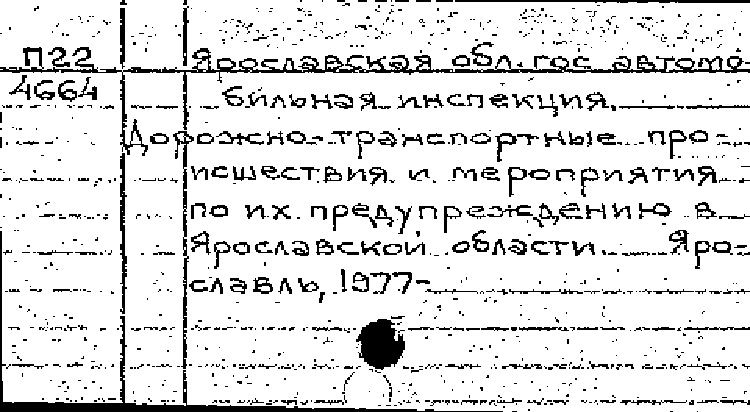 П22 Ярославская обл. гос автомо-
4664 бильная инспекция.
Дорожно-транспортные про-
исшествия и мероприятия
по их предупреждению в
Ярославской области. Яро-
славль, 1977-